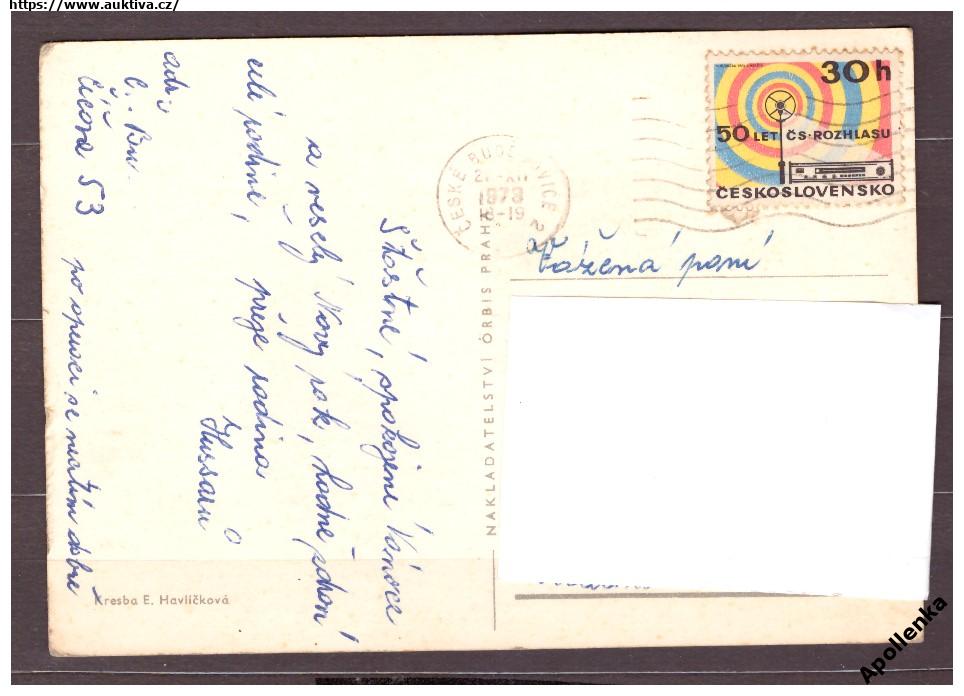 https://www.auktiva.cz/
30h
50 LET ČS. ROZHLASU
ČESKOSLOVENSKO
ČESKÉ BUDĚJOVICE 2
1973
18-19
Vážená paní
Šťastné, spokojené Vánoce
a veselý Nový rok, hodně zdraví
celé rodině, přeje rodina
Hussarů
adr:
Č. Bu
Čičova 53
po operaci se necítím dobře
NAKLADATELSTVÍ ORBIS PRAHA
Kresba E. Havlíčková
Apollenka